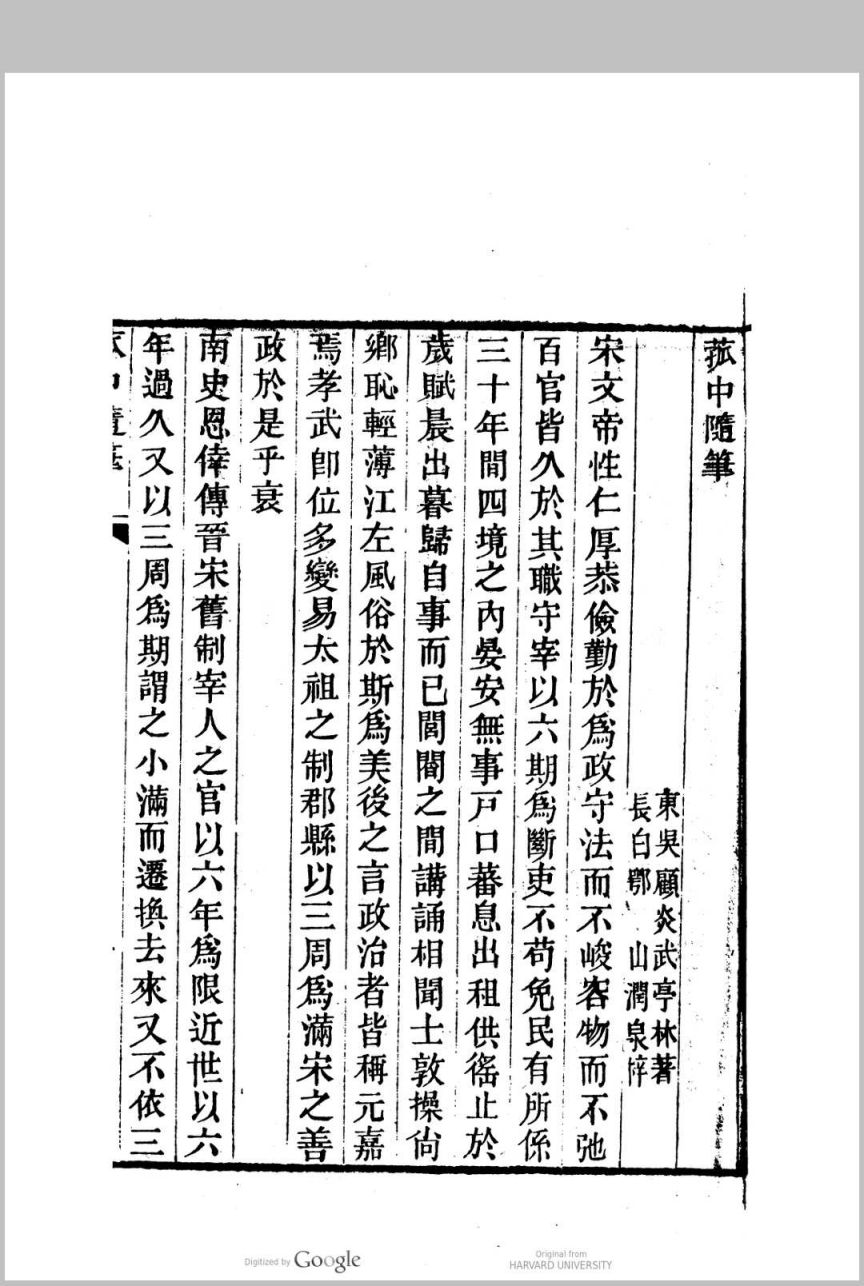 菰中隨筆
東吳顧炎武亭林著
長白鄂山潤泉梓
宋文帝性仁厚恭儉勤於爲政守法而不峻容物而不弛
百官皆久於其職守宰以六期爲斷吏不苟免民有所係
三十年間四境之內晏安無事戸口蕃息出租供徭止於
歲賦晨出暮歸自事而已閭閻之間講誦相聞士敦操尙
鄉恥輕薄江左風俗於斯爲美後之言政治者皆稱元嘉
焉孝武卽位多變易太祖之制郡縣以三周爲滿宋之善
政於是乎衰
南史恩倖傳晉宋舊制宰人之官以六年爲限近世以六
年過久又以三周爲期謂之小滿而遷換去來又不依三
菰中隨筆 一
Digitized by Google
Original from
HARVARD UNIVERSITY